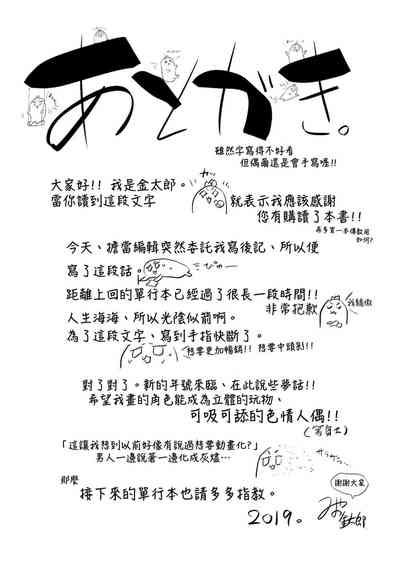 あとがき。
雖然字寫得不好看
但偶爾還是會手寫喔!!
大家好!! 我是金太郎。
當你讀到這段文字
就表示我應該感謝
您有購讀了本書!!
再多買一本傳教用
如何?
今天、擔當編輯突然委託我寫後記、所以便
寫了這段話。
距離上回的單行本已經過了很長一段時間!!
非常抱歉
我驕傲
人生海海、所以光陰似箭啊。
為了這段文字、寫到手指快斷了。
想要更加暢銷!! 想要中頭彩!!
對了對了。新的年號來臨、在此說些夢話!!
希望我畫的角色能成為立體的玩物、
可吸可舔的色情人偶!!
「這讓我想到以前好像有說過想要動畫化?」
男人一邊說著一邊化成灰燼…
那麼
接下來的單行本也請多多指教。
謝謝大家
2019。
金太郎